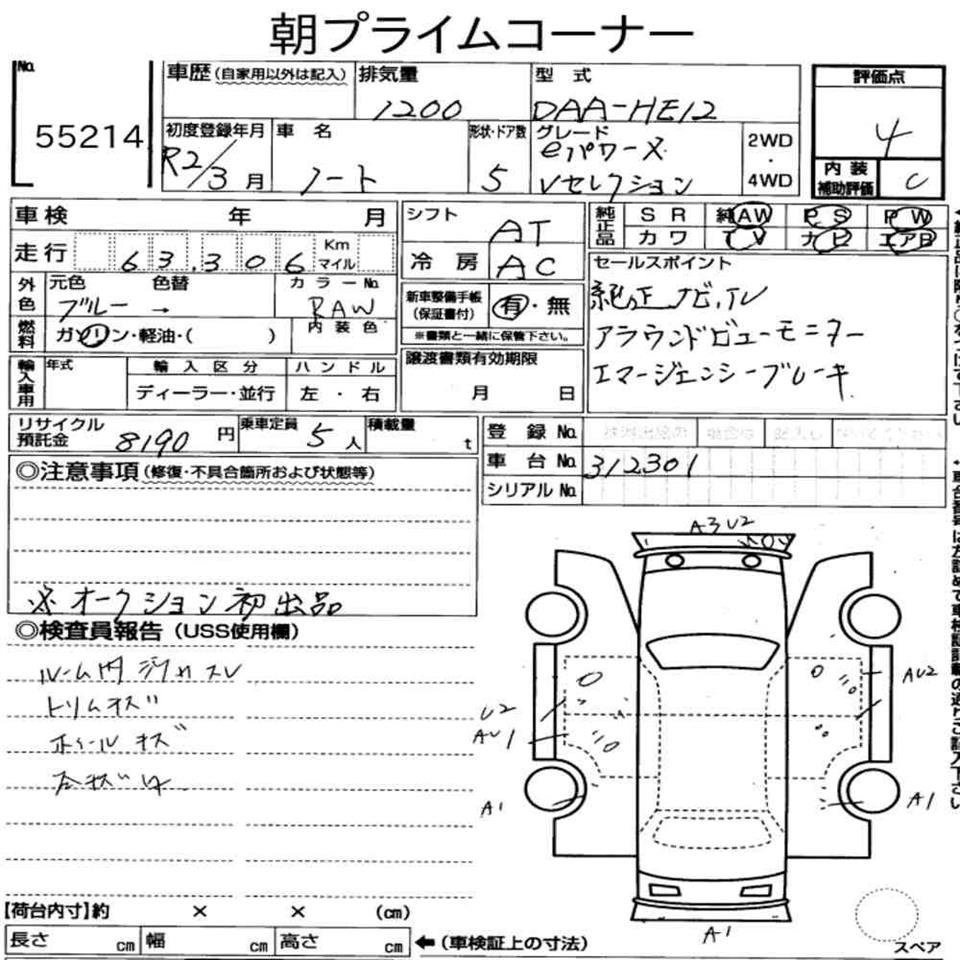 朝プライムコーナー
No. 55214
車歴(自家用以外は記入) 排気量 1200 型式 DAA-HE12
評価点 4
初度登録年月 R2/3月 車名 ノート 形状・ドア数 5 グレード eパワーX Vセレクション 2WD・4WD
内装補助評価 C
車検 年 月
走行 63,306 Km マイル
シフト AT
冷房 AC
純正品 SR 純AW PS PW
カワ TV ナビ エアB
外色 元色 ブルー 色替 → カラーNo. RAW
内装色
燃料 ガソリン・軽油・( )
新車整備手帳(保証書付) 有・無
※書類と一緒に保管下さい。
セールスポイント
純正ナビ,TV
アラウンドビューモニター
エマージェンシーブレーキ
輸入車用 年式 輸入区分 ハンドル
ディーラー・並行 左・右
譲渡書類有効期限
月 日
リサイクル預託金 8190円 乗車定員 5人 積載量 t
登録No.
車台No. 312301
シリアルNo.
◎注意事項(修復・不具合箇所および状態等)
※オークション初出品
◎検査員報告(USS使用欄)
ルーム内
トリムキズ
ホイールキズ
A3 U2
U2
AU1
A1
AU2
A1
A1
スペア
【荷台内寸】約 × × (cm)
長さ cm 幅 cm 高さ cm ←(車検証上の寸法)